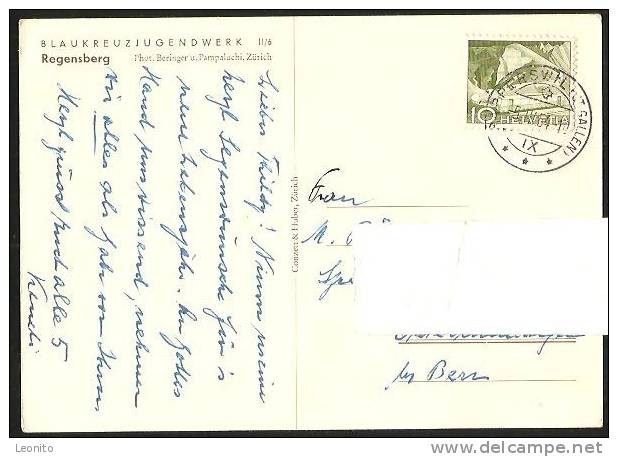 BLAUKREUZJUGENDWERK II/6
Regensberg Phot. Beringer u. Pampaluchi, Zürich
Liebes Thildy! Nimm meine
herzl. Segenswünsche für's
neue Lebensjahr. An Gottes
Hand uns wissend, nehmen
wir alles als Gabe von Ihm
Herzl. grüsst Euch alle 5
Conzett & Huber, Zürich
10 HELVETIA
(ST. GALLEN)
IX
Frau
M.
bei Bern
Leonito
www.delcampe.net